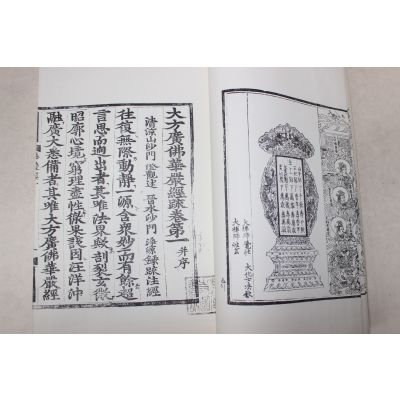 大禪師
大禪師
大方廣佛華嚴經疏卷第一 并序
清涼山沙門 澄觀述 晉水沙門 淨源錄疏注經
往復無際動靜一源含衆妙而有餘超
言思而逈出者其唯法界歟剖裂玄微
昭廓心境窮理盡性徹果該因汪洋沖
融廣大悉備者其唯大方廣佛華嚴經